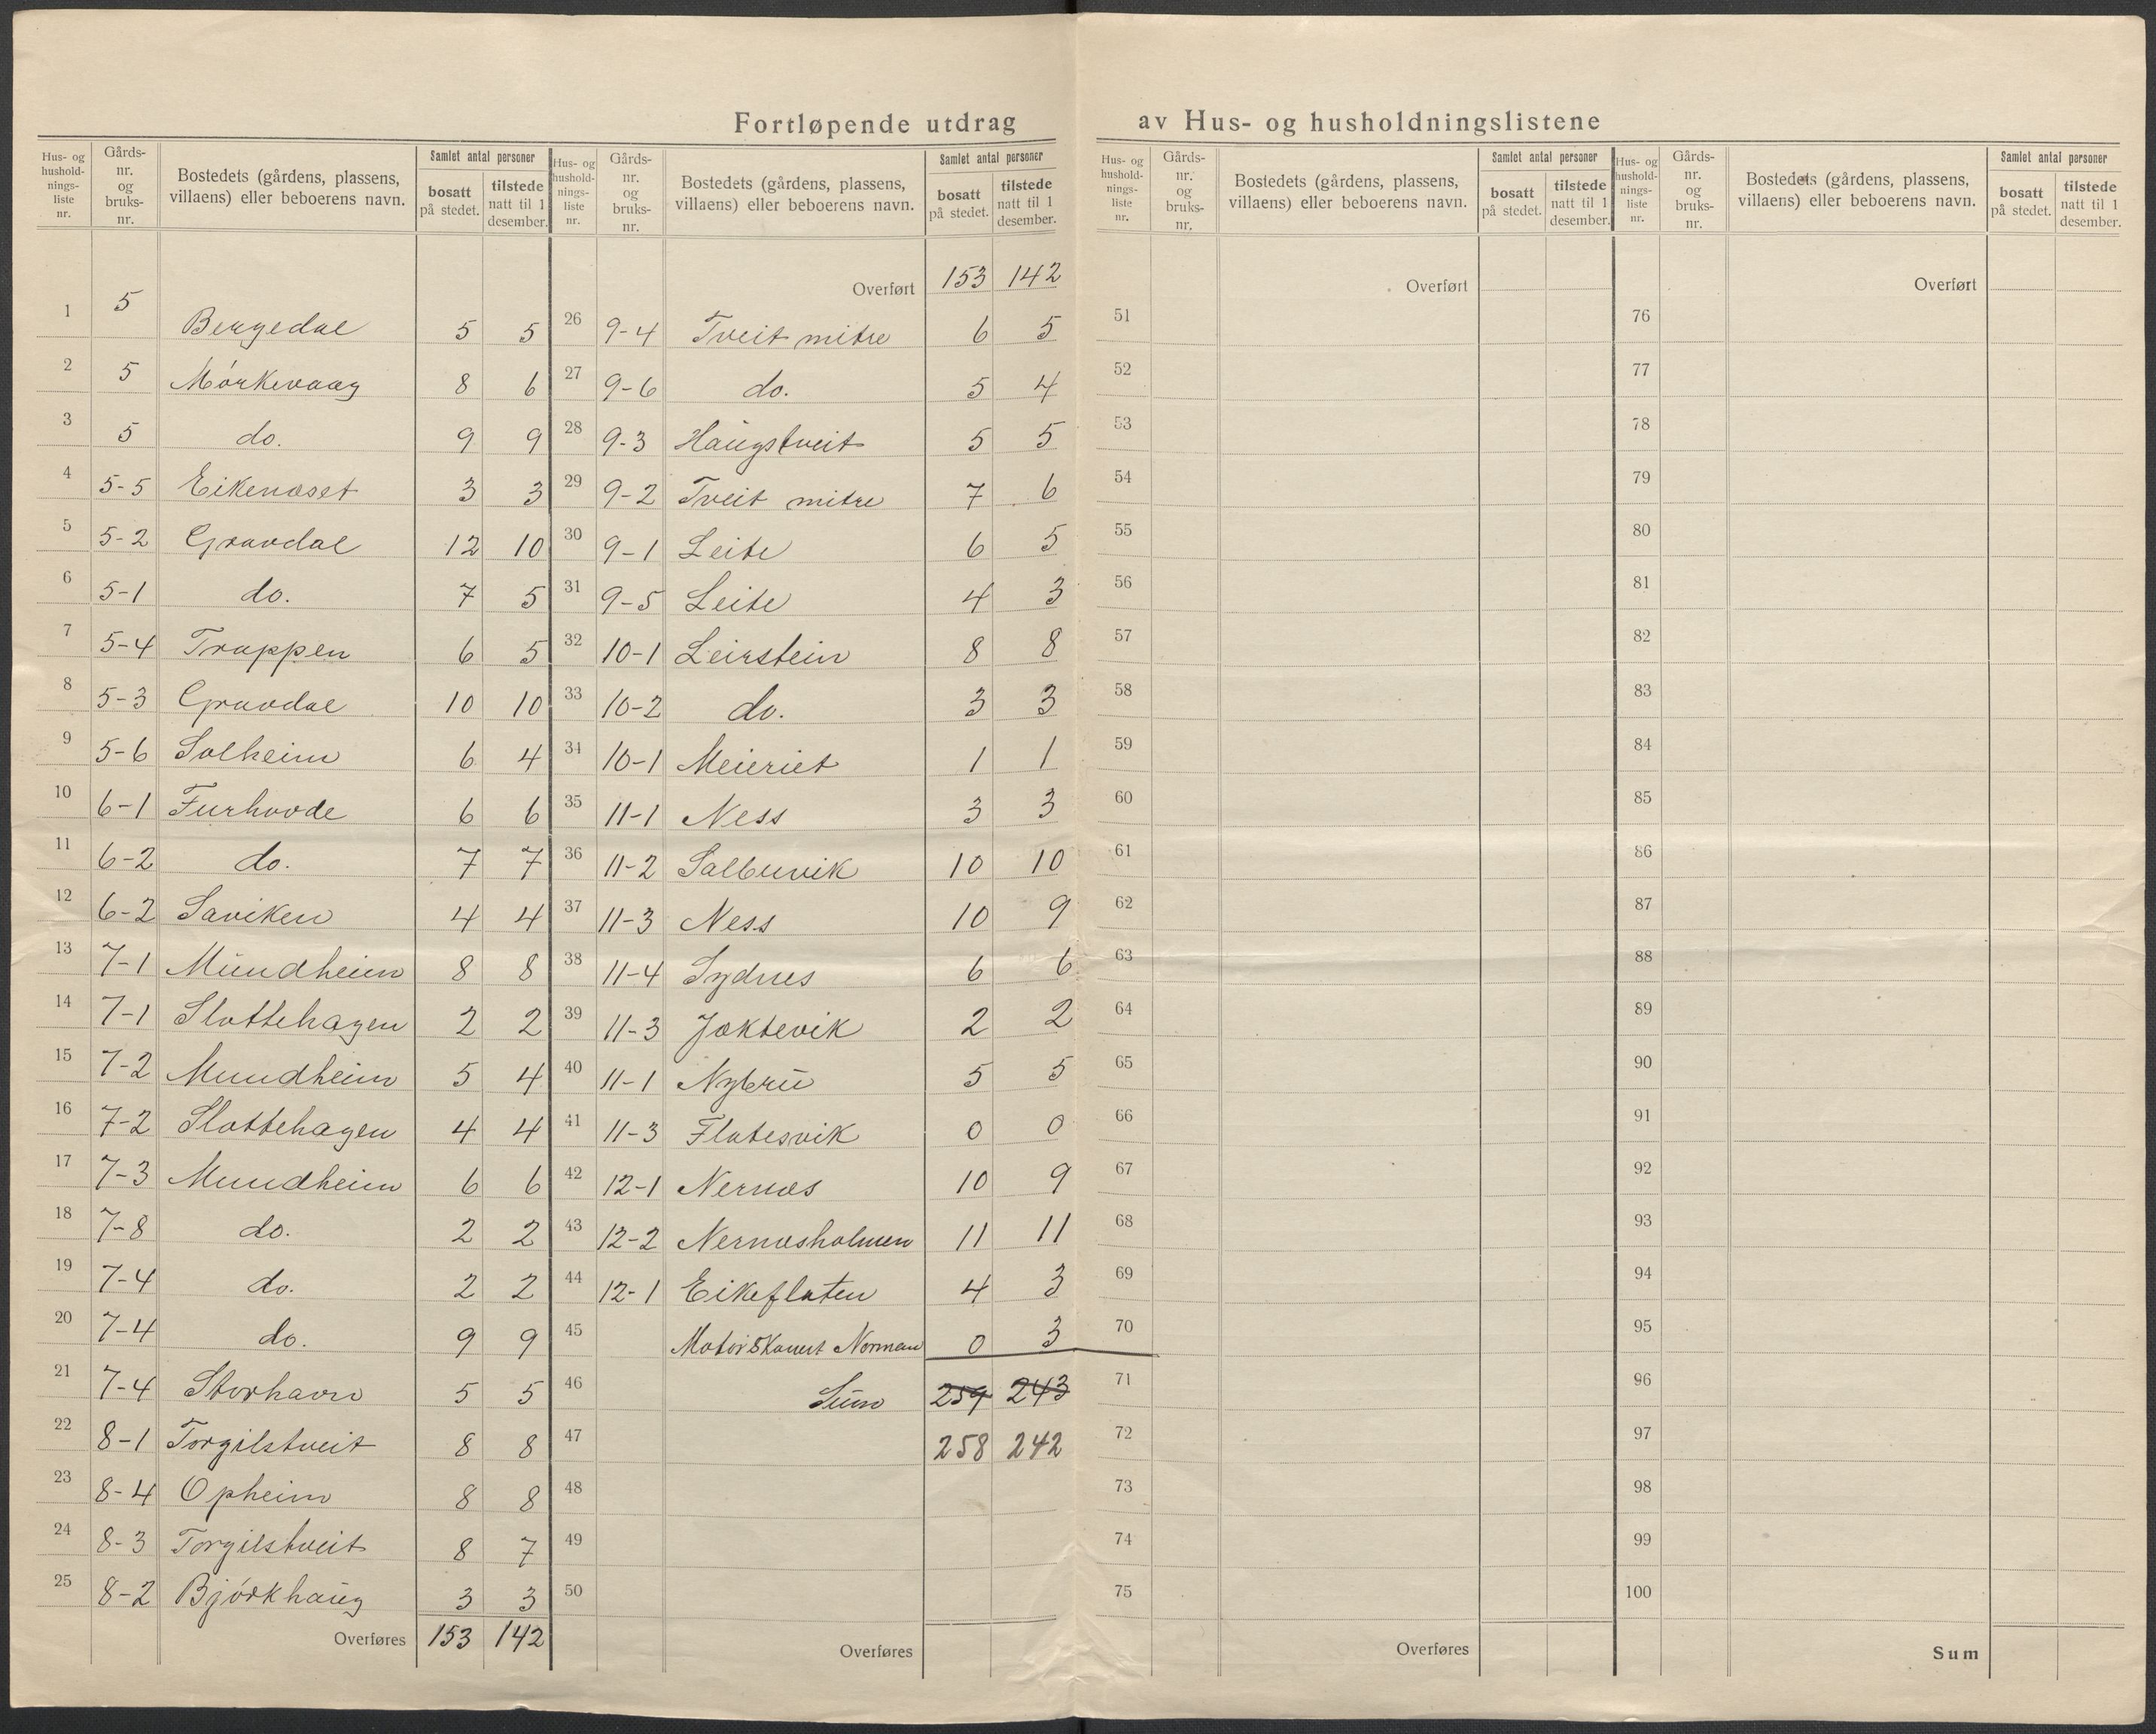 Fortløpende utdrag av Hus- og husholdningslistene
Hus- og husholdnings-liste nr. Gårds-nr. og bruks-nr. Bostedets (gårdens, plassens, villaens) eller beboerens navn. Samlet antal personer bosatt på stedet. tilstede natt til 1 desember.
1 5 Bergedal 5 5
2 5 Mórkevaag 8 6
3 5 do. 9 9
4 5-5 Eikenæset 3 3
5 5-2 Gravdal 12 10
6 5-1 do. 7 5
7 5-4 Trappen 6 5
8 5-3 Gravdal 10 10
9 5-6 Solheim 6 4
10 6-1 Furhovde 6 6
11 6-2 do. 7 7
12 6-2 Saviken 4 4
13 7-1 Mundheim 8 8
14 7-1 Slottehagen 2 2
15 7-2 Mundheim 5 4
16 7-2 Slottehagen 4 4
17 7-3 Mundheim 6 6
18 7-8 do. 2 2
19 7-4 do. 2 2
20 7-4 do. 9 9
21 7-4 Storhavn 5 5
22 8-1 Torgilstveit 8 8
23 8-4 Opheim 8 8
24 8-3 Torgilstveit 8 7
25 8-2 Bjórkhaug 3 3
Overføres 153 142
Hus- og husholdnings-liste nr. Gårds-nr. og bruks-nr. Bostedets (gårdens, plassens, villaens) eller beboerens navn. Samlet antal personer bosatt på stedet. tilstede natt til 1 desember.
Overført 153 142
26 9-4 Tveit mitre 6 5
27 9-6 do. 5 4
28 9-3 Haugstveit 5 5
29 9-2 Tveit mitre 7 6
30 9-1 Leite 6 5
31 9-5 Leite 4 3
32 10-1 Leirstein 8 8
33 10-2 do. 3 3
34 10-1 Meieriet 1 1
35 11-1 Ness 3 3
36 11-2 Salbuvik 10 10
37 11-3 Ness 10 9
38 11-4 Sydnes 6 6
39 11-3 Jaktevik 2 2
40 11-1 Nybru 5 5
41 11-3 Flatesvik 0 0
42 12-1 Nernæs 10 9
43 12-2 Nernæsholmen 11 11
44 12-1 Eikeflaten 4 3
45 Motorskøuert 0 3
46 Sum 259 243
47 258 242
48
49
50
Overføres
Hus- og husholdnings-liste nr. Gårds-nr. og bruks-nr. Bostedets (gårdens, plassens, villaens) eller beboerens navn. Samlet antal personer bosatt på stedet. tilstede natt til 1 desember.
Overført
51
52
53
54
55
56
57
58
59
60
61
62
63
64
65
66
67
68
69
70
71
72
73
74
75
Overføres
Hus- og husholdnings-liste nr. Gårds-nr. og bruks-nr. Bostedets (gårdens, plassens, villaens) eller beboerens navn. Samlet antal personer bosatt på stedet. tilstede natt til 1 desember.
Overført
76
77
78
79
80
81
82
83
84
85
86
87
88
89
90
91
92
93
94
95
96
97
98
99
100
Sum